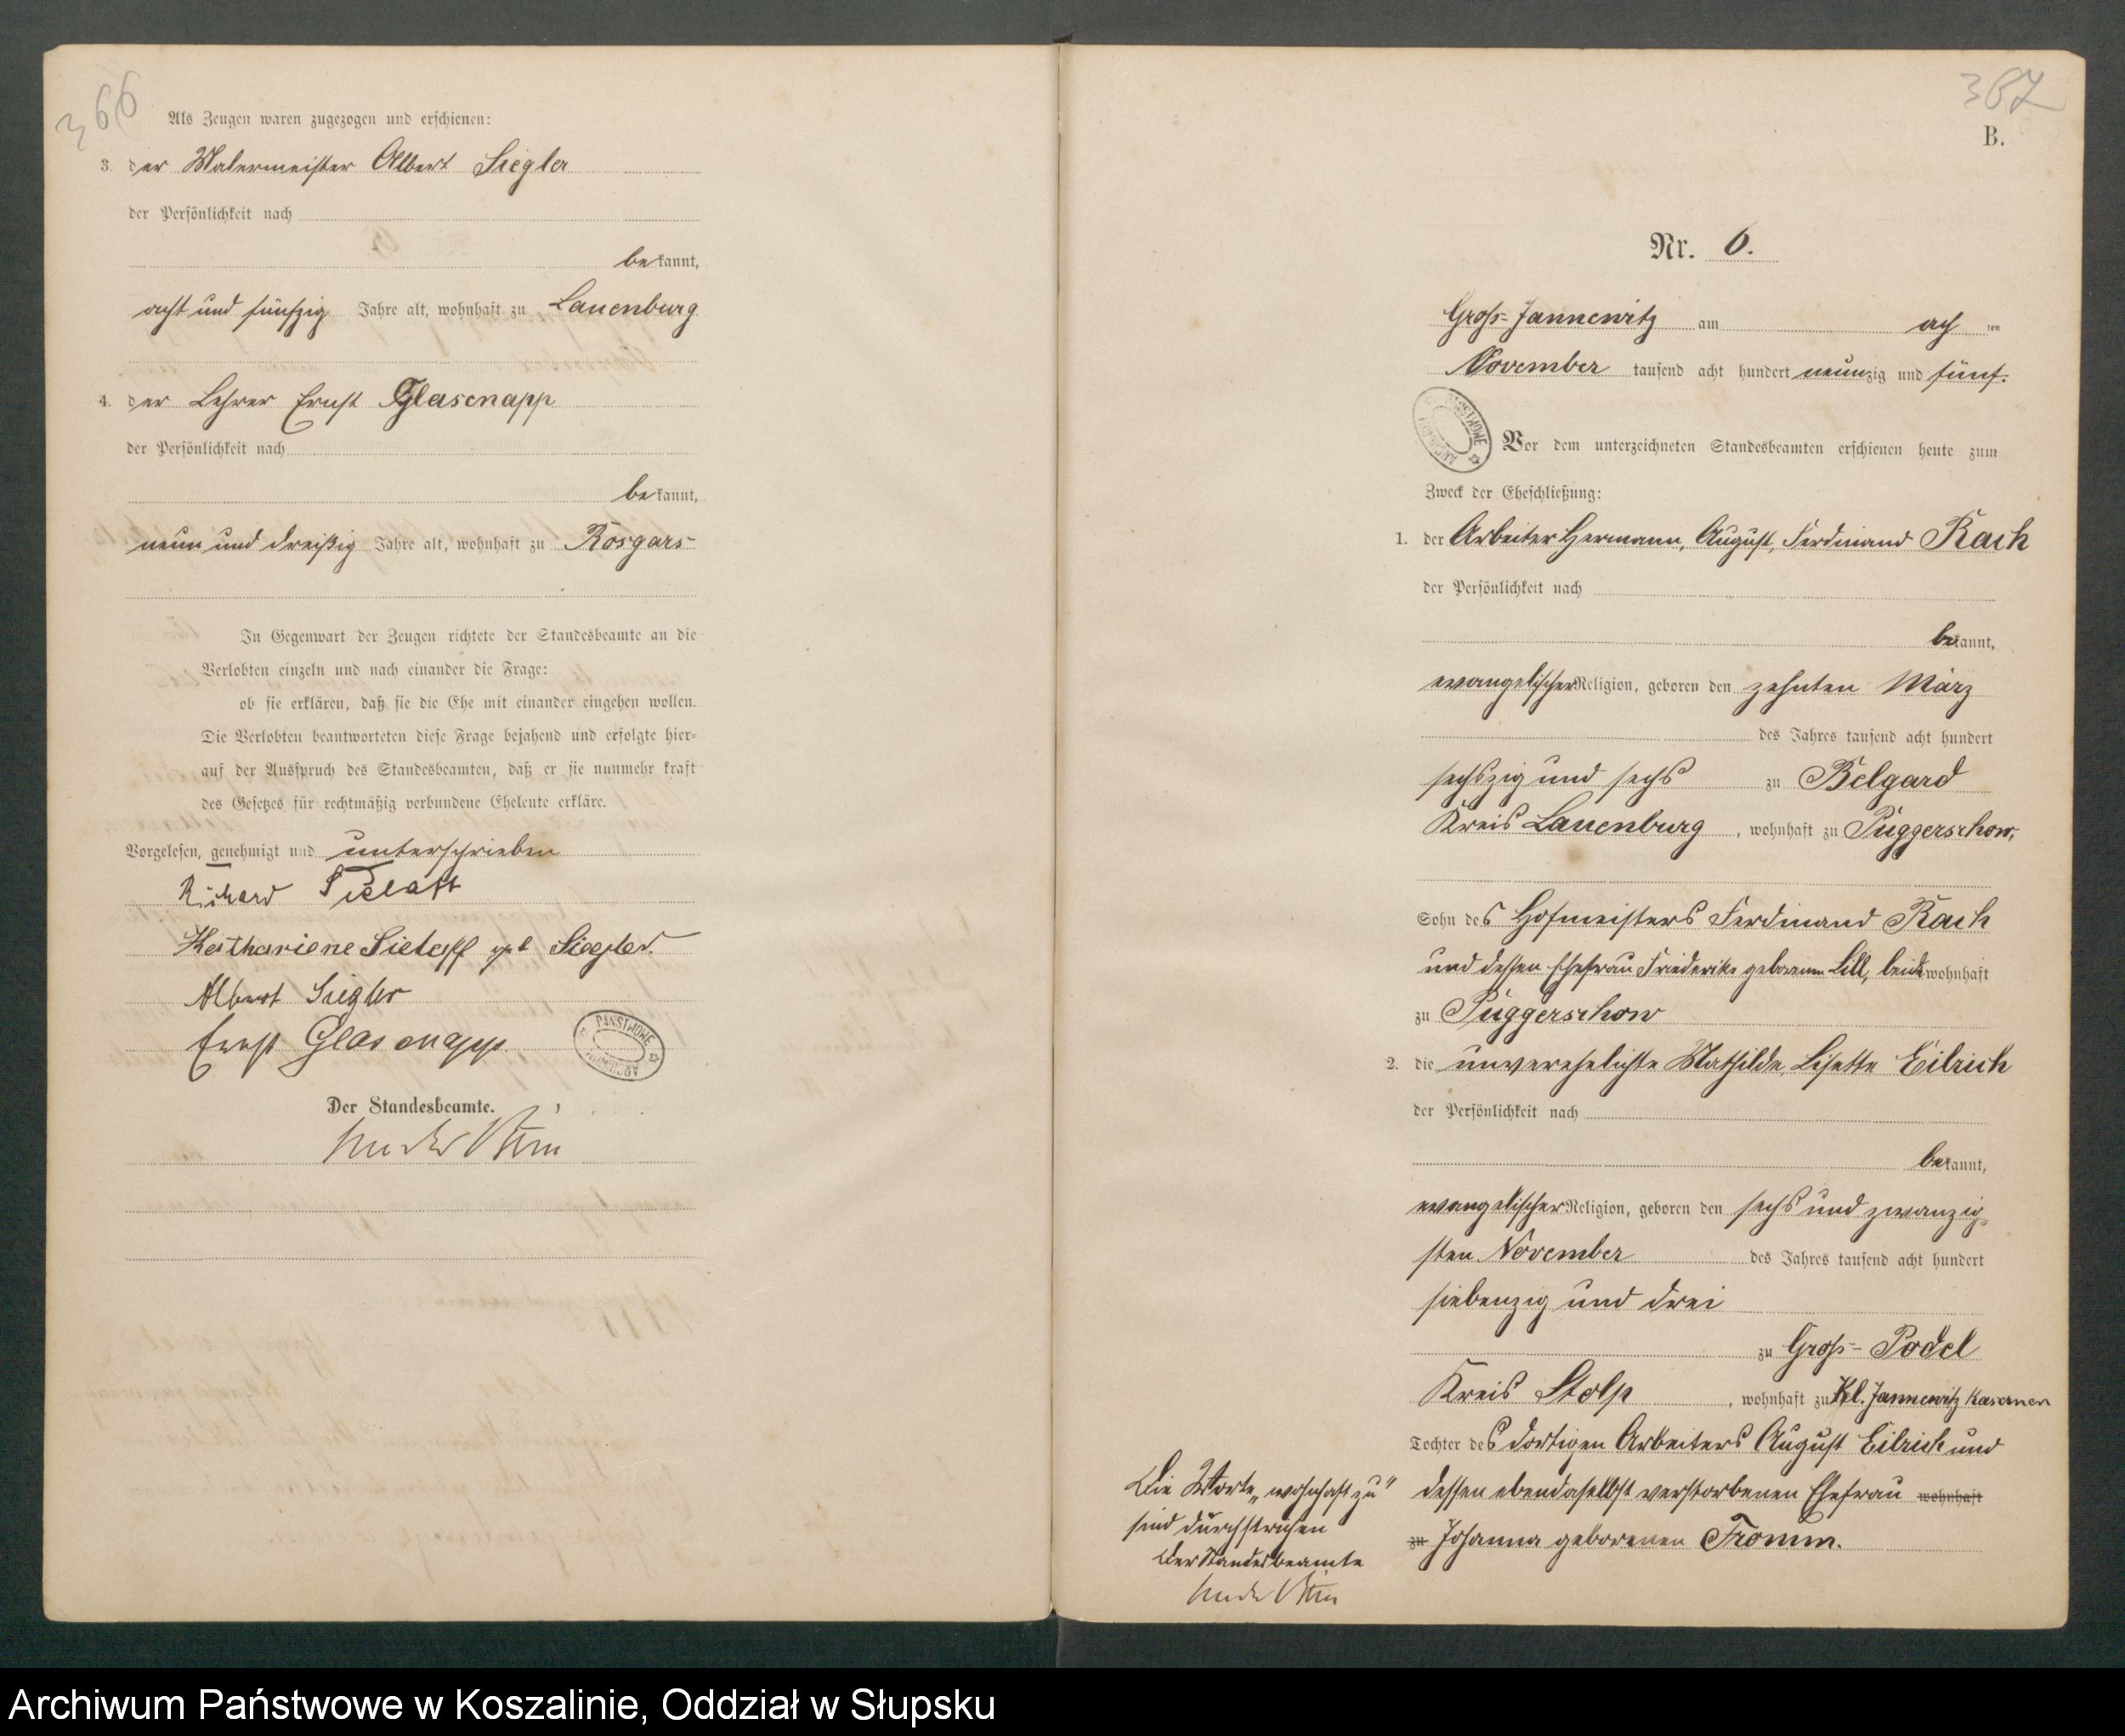 366
Als Zeugen waren zugezogen und erschienen:
3. der Malermeister Albert Siegler
der Persönlichkeit nach
bekannt,
acht und fünfzig Jahre alt, wohnhaft zu Lauenburg
4. der Lehrer Ernst Glasenapp
der Persönlichkeit nach
bekannt,
neun und dreißig Jahre alt, wohnhaft zu Rosgars
In Gegenwart der Zeugen richtete der Standesbeamte an die
Verlobten einzeln und nach einander die Frage:
ob sie erklären, daß sie die Ehe mit einander eingehen wollen.
Die Verlobten beantworteten diese Frage bejahend und erfolgte hier-
auf der Ausspruch des Standesbeamten, daß er sie nunmehr kraft
des Gesetzes für rechtmäßig verbundene Eheleute erkläre.
Vorgelesen, genehmigt und unterschrieben
Richard Sielaff
Kathariene Sielaff geb Siegler.
Albert Siegler
Ernst Glasenapp
PAŃSTWOWE ARCHIWUM
Der Standesbeamte.
367
B.
Nr. 6.
Groß-Jannewitz am achten
November tausend acht hundert neunzig und fünf.
PAŃSTWOWE ARCHIWUM
Vor dem unterzeichneten Standesbeamten erschienen heute zum
Zweck der Eheschließung:
1. der Arbeiter Hermann, August, Ferdinand Rach
der Persönlichkeit nach
bekannt,
evangelischer Religion, geboren den zehnten März
des Jahres tausend acht hundert
sechszig und sechs zu Belgard
Kreis Lauenburg, wohnhaft zu Puggerschow,
Sohn des Hofmeisters Ferdinand Rach
und dessen Ehefrau Friederike geborenen Lill, beide wohnhaft
zu Puggerschow
2. die unverehelichte Mathilde, Lisette Eilrich
der Persönlichkeit nach
bekannt,
evangelischer Religion, geboren den sechs und zwanzig-
sten November des Jahres tausend acht hundert
siebenzig und drei
zu Groß-Podel
Kreis Stolp, wohnhaft zu Kl. Jannewitz Kasernen
Tochter des dortigen Arbeiters August Eilrich und
dessen ebendaselbst verstorbenen Ehefrau wohnhaft
zu Johanna geborenen Fromm.
Die Worte „wohnhaft zu"
sind durchstrichen
Der Standesbeamte
Archiwum Państwowe w Koszalinie, Oddział w Słupsku